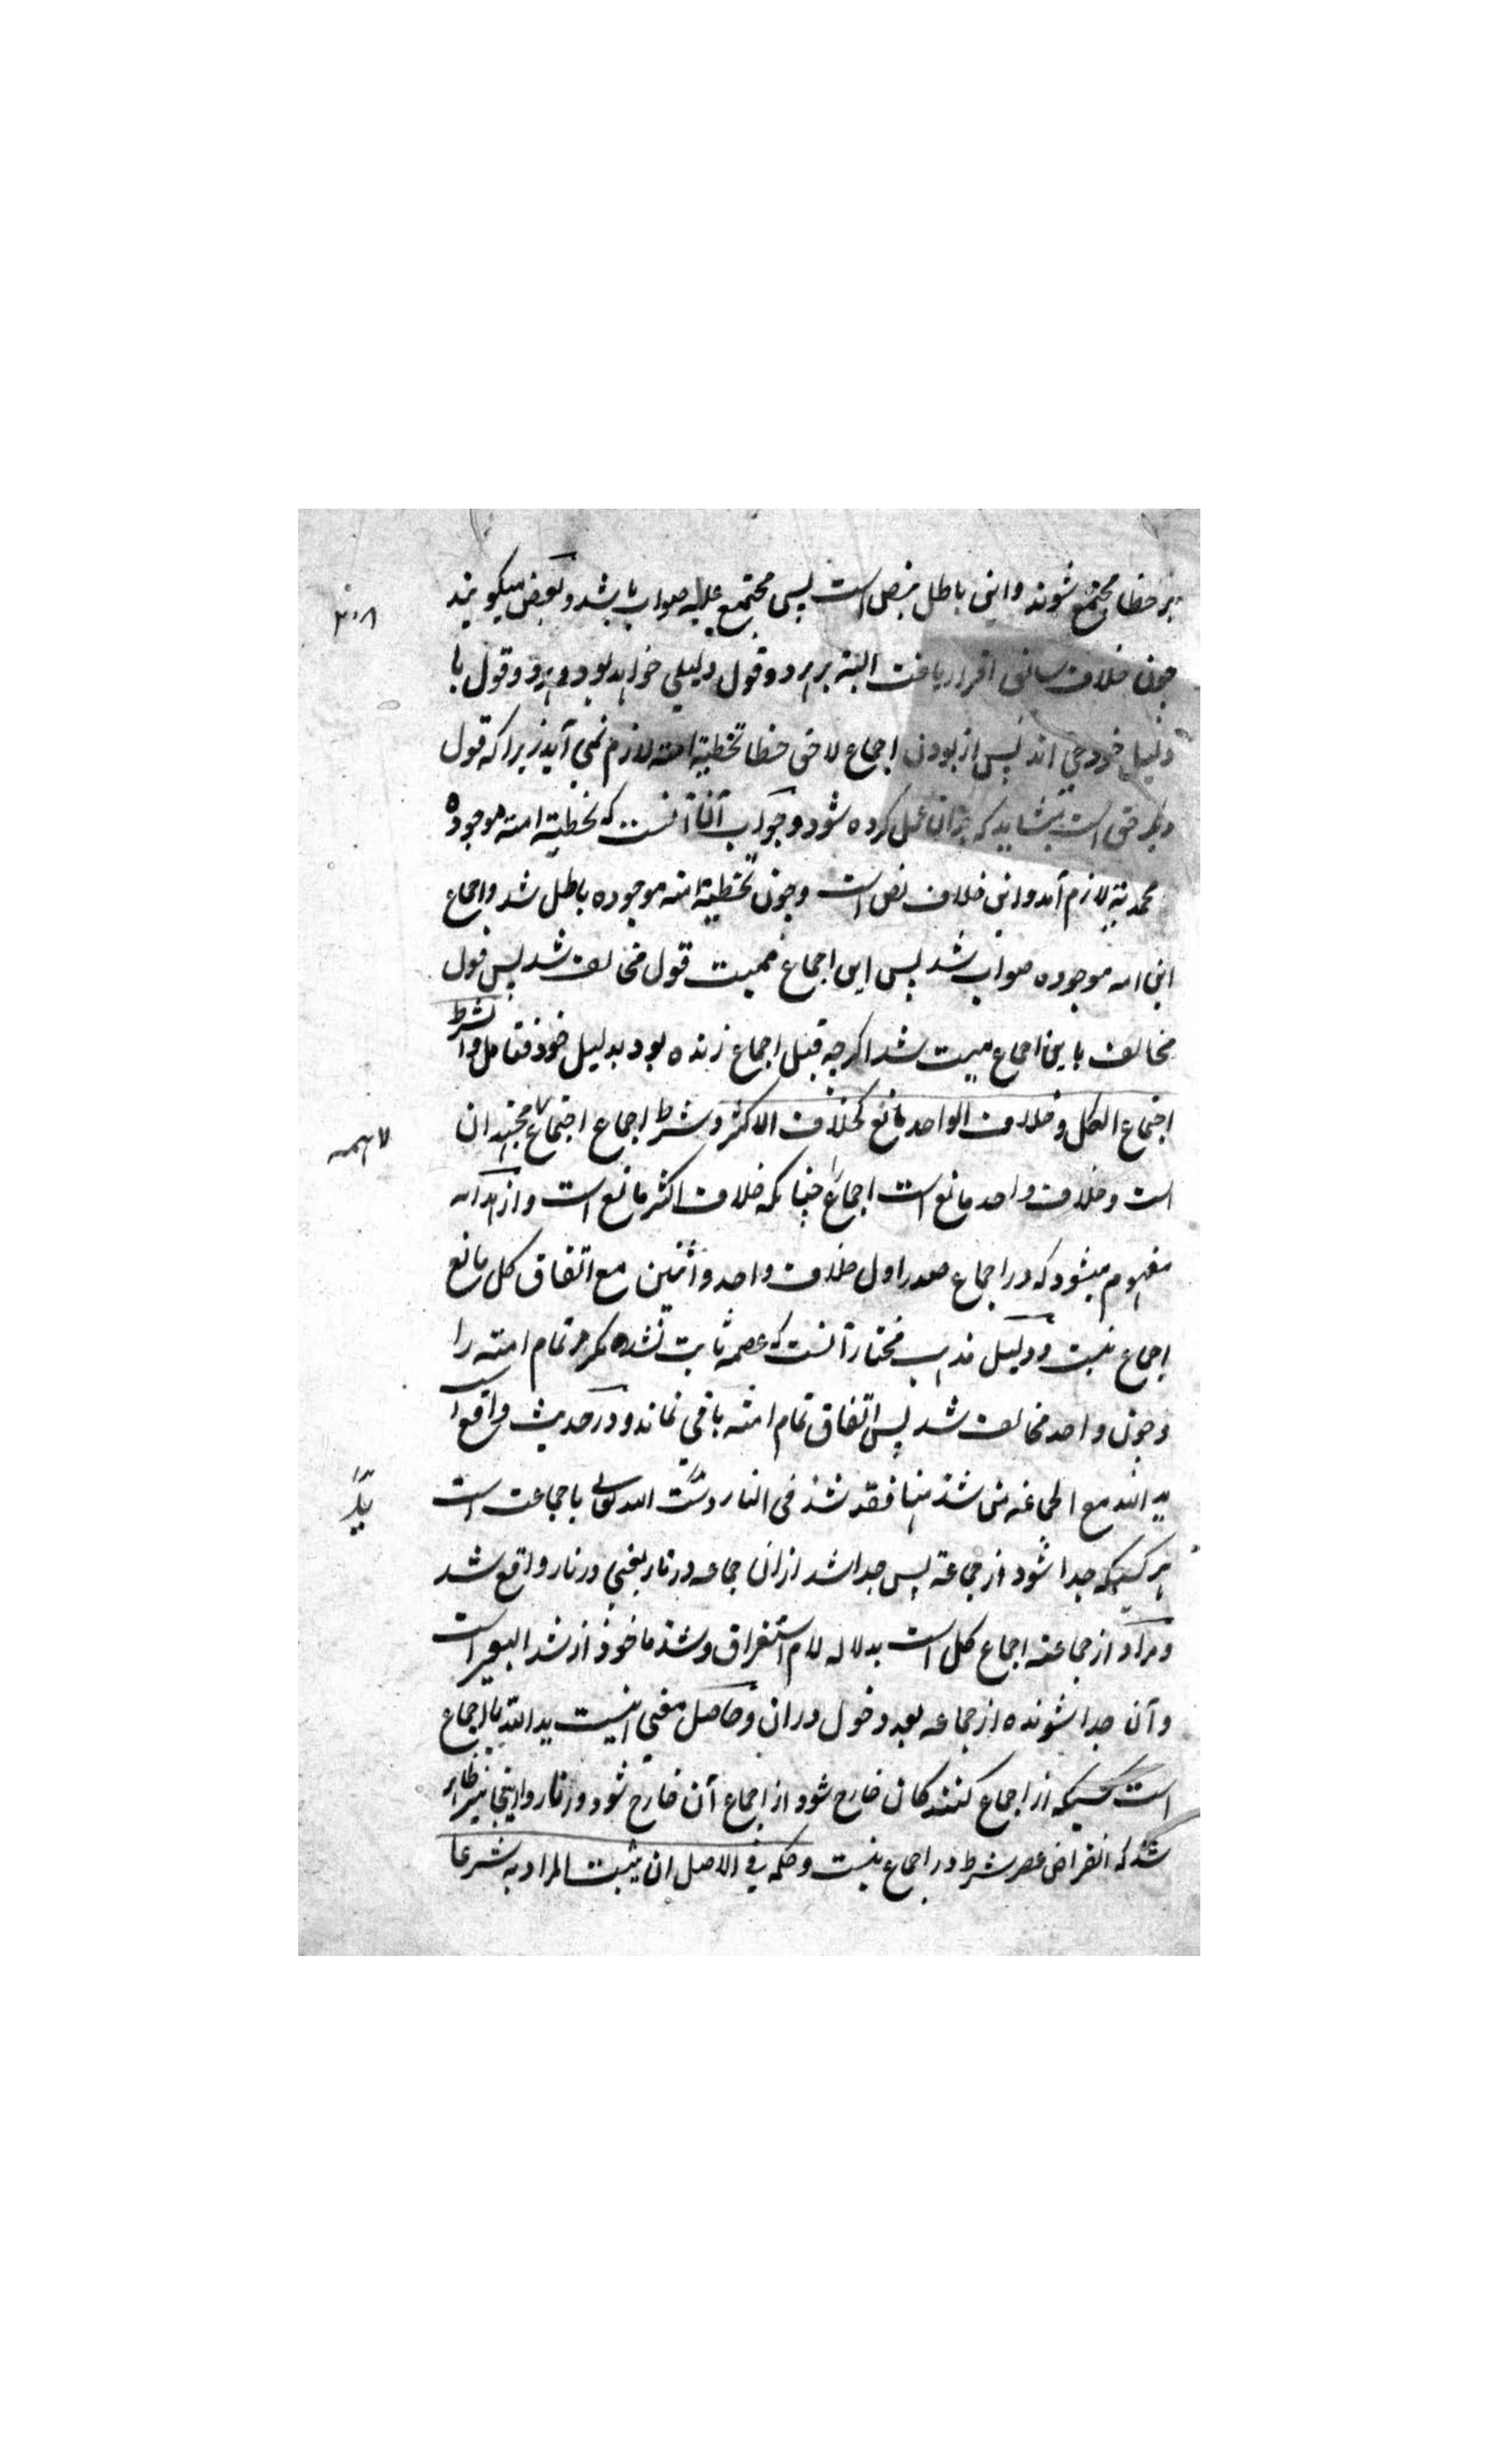 بر خطا مجتمع شوند و این باطل بنص است پس مجتمع علیه صواب باشد و بعض میکویند
۳۰۸
چون خلاف سابق اقرار یافت البته بر هر دو قول دلیلی خواهد بود و هر دو قول با
دلیل خود حی اند پس از بودن اجماع لاحق خطا تخطیة امته لازم نمی آید زیرا که قول
دیکر حق است بشاید که بران عمل کرده شود و جواب آنها آنست که تخطیة امته موجوده
محمدیة لازم آید و این خلاف نص است و چون تخطیة امته موجوده باطل شد و اجماع
این امه موجوده صواب شد پس این اجماع ممیت قول مخالف شد پس قول
مخالف باین اجماع میت شد اکرچه قبل اجماع زنده بود بدلیل خود فتامل والشرط
اجتماع الکل و خلاف الواحد مانع کخلاف الاکثر و شرط اجماع اجتماع مجتهدان
همه
است و خلاف واحد مانع است اجماع را چنانکه خلاف اکثر مانع است و از هدایه
مفهوم میشود که در اجماع صدر اول خلاف واحد و اثنین مع اتفاق کل مانع
اجماع نیست و دلیل مذهب مختار آنست که عصمة ثابت نشده مکر مر تمام امته را
و چون واحد مخالف شد پس اتفاق تمام امته باقی نماند و در حدیث واقع است
ید الله مع الجماعه فمن شذ منها فقد شذ فی النار دست الله تعالی با جماعت است
ید
هر کسیکه جدا شود از جماعة پس جدا شد ازان جماعه در نار یعنی در نار واقع شد
و مراد از جماعته اجماع کل است بدلاله لام استغراق و شذ ماخوذ از شذ البعیر است
و آن جدا شونده از جماعه بعد دخول دران و حاصل معنی اینست ید الله با اجماع
است کسیکه از اجماع کنندکان خارج شود از اجماع آن خارج شود در نار و اینجا نیز ظاهر
شد که انقراض عصر شرط در اجماع نیست و حکمه فی الاصل ان یثبت المراد به شرعا